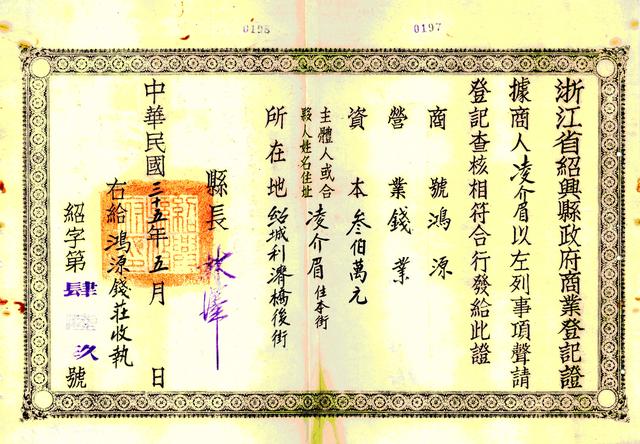 0198
0197
浙江省紹興縣政府商業登記證
據商人凌介眉以左列事項聲請
登記查核相符合行發給此證
商號鴻源
營業錢業
資本叁佰萬元
主體人或合
夥人姓名住址
凌介眉住本街
所在地紹城利濟橋後街
縣長林澤
中華民國三十五年五月 日
右給鴻源錢莊收執
紹字第肆 玖號